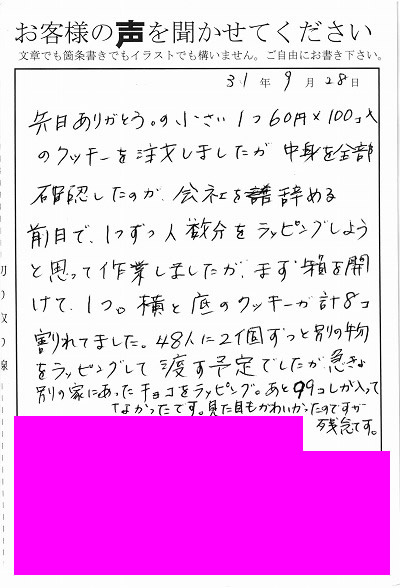 お客様の声を聞かせてください
文章でも箇条書きでもイラストでも構いません。ご自由にお書き下さい。
31年9月28日
先日ありがとう。の小さい1つ60円×100コ入
のクッキーを注文しましたが中身を全部
確認したのが、会社を辞める
前日で、1つずつ人数分をラッピングしよう
と思って作業しましたが、まず箱を開
けて、1つ。横と底のクッキーが計8コ
割れてました。48人に2個ずつと別の物
をラッピングして渡す予定でしたが急きょ
別の家にあったチョコをラッピング。あと99コしか入って
なかったです。見た目もかわいかったのですが
残念です。
切り取り線